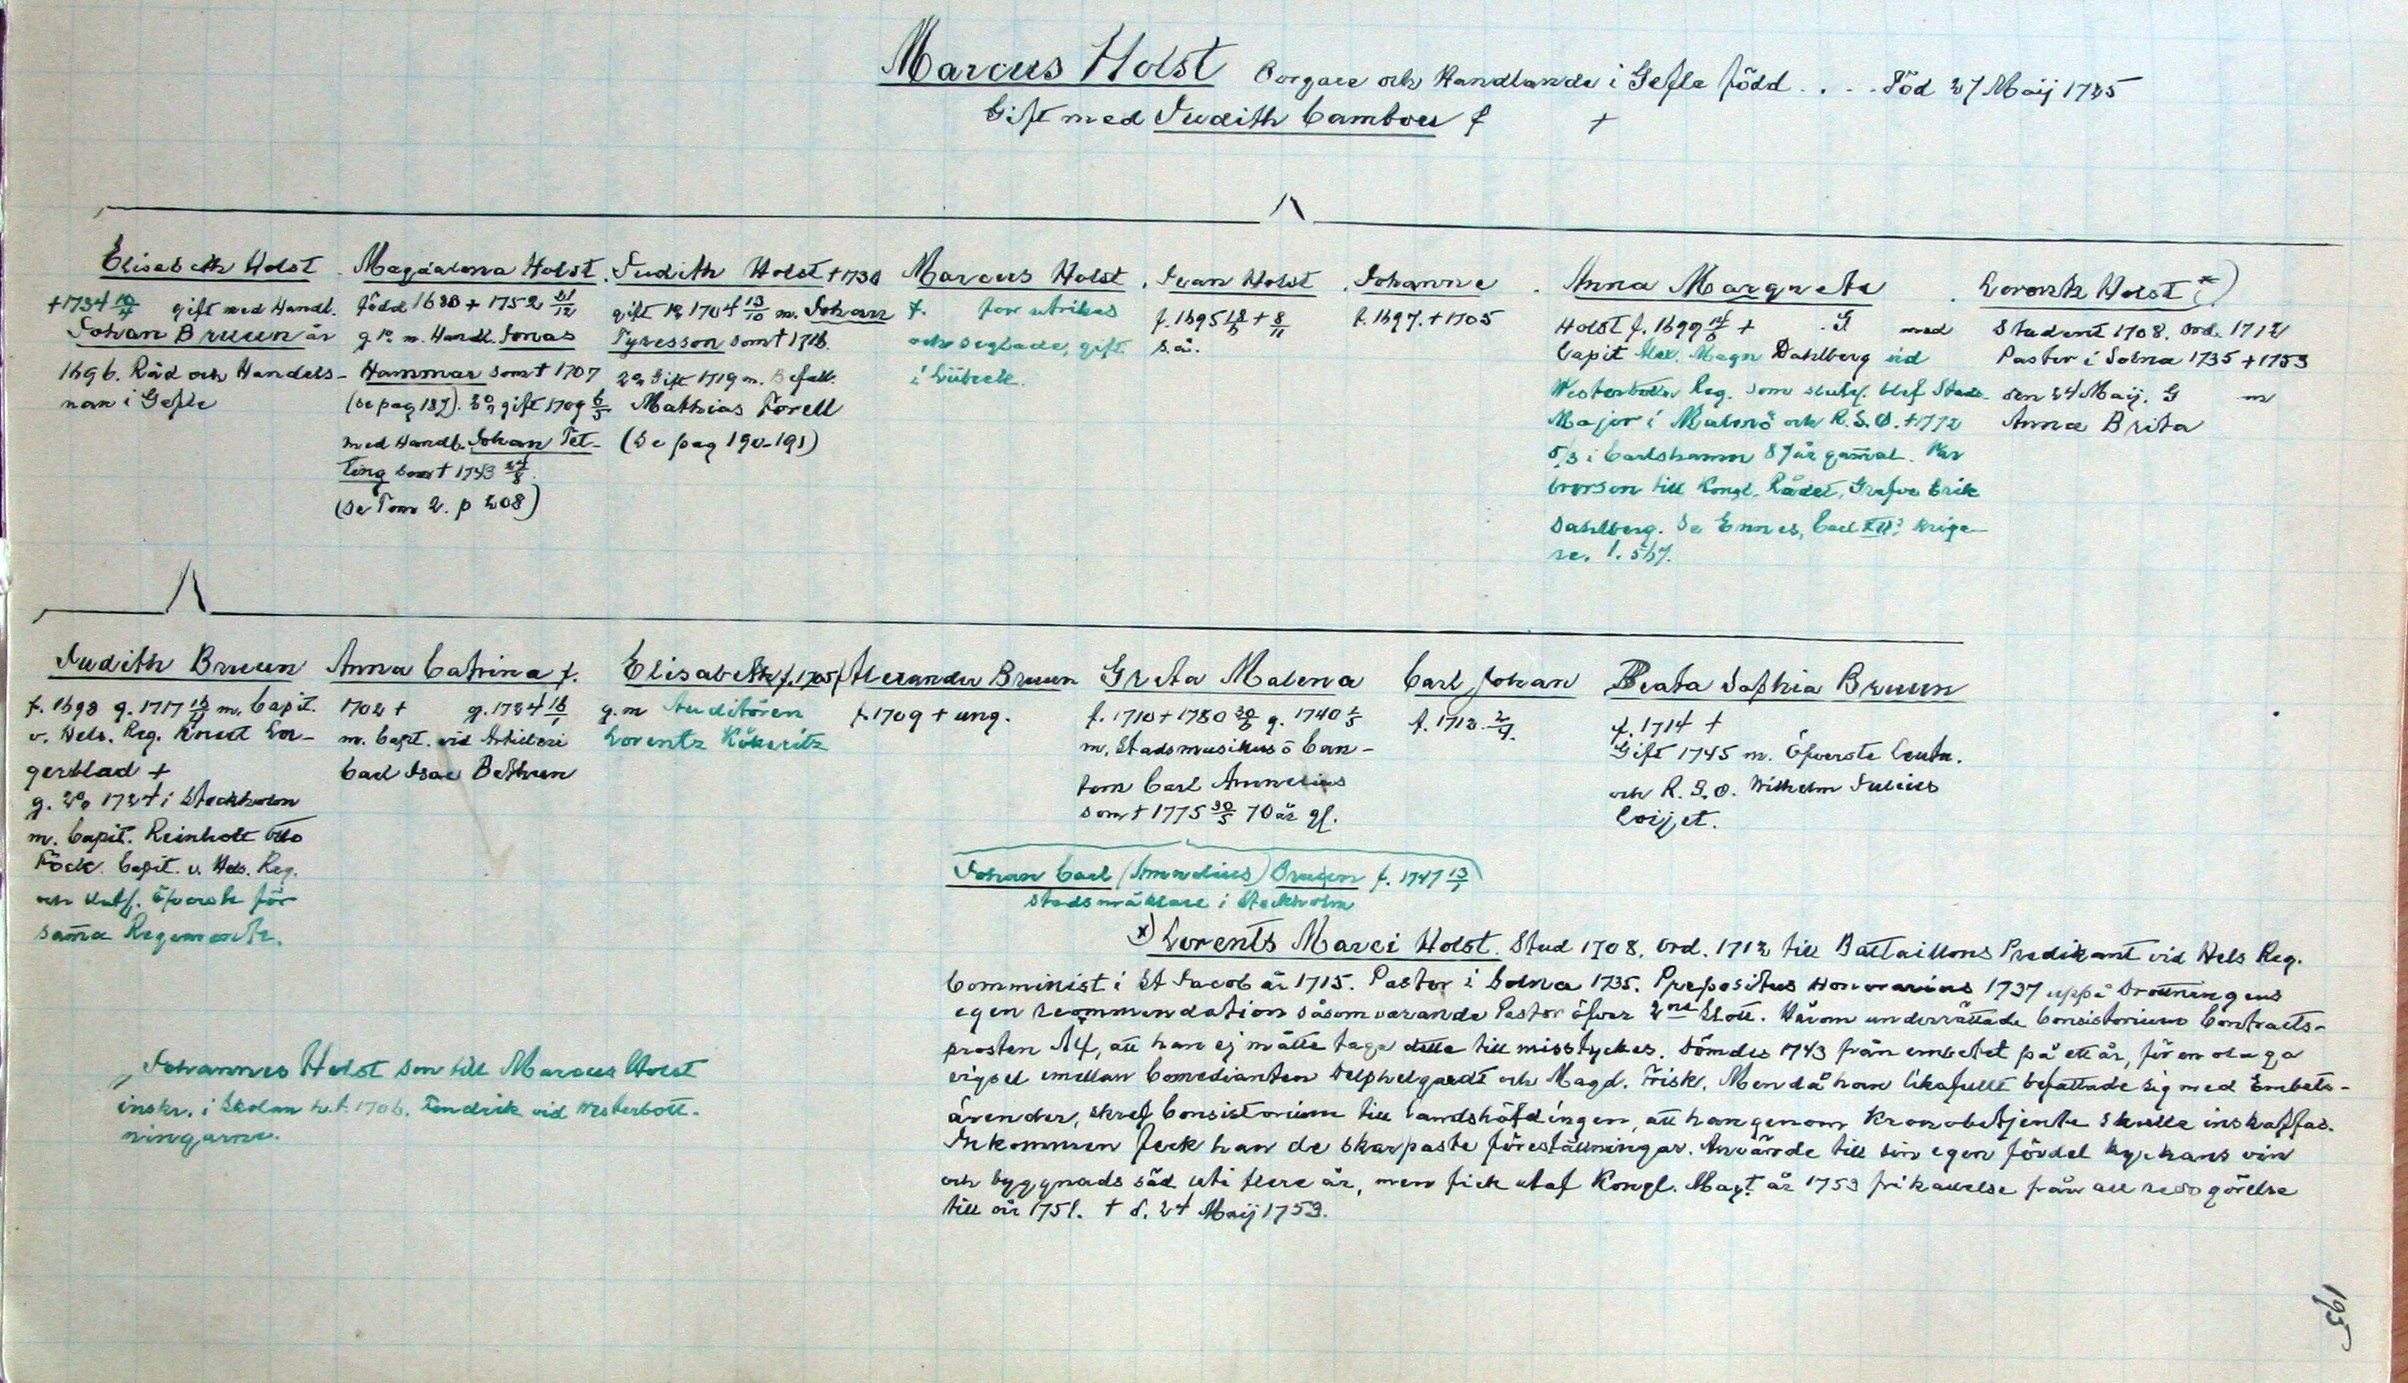 Marcus Holst Borgare och Handlande i Gefle född . . . . Död 27 Maij 1725
Gift med Judith Cambou f +
Elisabeth Holst
+1734 gift med Handl.
Johan Bruun år
1696. Råd och Handels-
man i Gefle
Magdalena Holst
född 1688 + 1752 21/12
g 1o m. Handl. Jonas
Hammar som + 1707
(se pag 187). 2o, gift 1709 6/5
med Handl. Johan Pet-
ting som + 1743
(se Tom 2. p 208)
Judith Holst + 1738
gift 1o 1704 13/10 m. Johan
Tyresson som + 1718.
2o Gift 1719 m. Befall.
Mathias Forell
(Se pag 190-191)
Marcus Holst
f. for utrikes
och seglade, gift
i Lübeck.
Jean Holst
f. 1695 + 8/11
s.å.
Johanne
f. 1697. + 1705
Anna Margreta
Holst f. 1699 + G med
Capit Alex. Magn Dahlberg vid
Westerbottn Reg. som slutel. blef Stads-
Major i Malmö och R.S.O. +1772
5/3 i Carlshamn 87 år gam̄al. Var
brorson till Kongl. Rådet, Grefve Erik
Dahlberg. Se Ennes, Carl XII: krige-
re. 1. 567.
Lorentz Holst *)
Student 1708. ord. 1712
Pastor i Solna 1735 + 1753
den 24 Maij. G m
Anna Brita
Judith Bruun
f. 1698 g. 1717 m. Capit.
v. Hels. Reg. Knut La-
gerblad +
g. 2o, 1724 i Stockholm
m. Capit. Reinholt Otto
Fock. Capit. v. Hels. Reg.
och slutl. Öfverste för
sam̄a Regemente.
Anna Catrina f.
1702 + g. 1724 18/1
m. Capt. vid Artilleri
Carl Isac Bethun
Elisabeth f. 1705
g. m Auditören
Lorentz Kökeritz
Alexander Bruun
f. 1709 + ung.
Greta Malena
f. 1710 + 1780 g. 1740
m. Stadsmusikus o Can-
tom Carl Amnelius
som + 1775 30/5 70 år gl.
Carl Johan
f. 1712. 2/4.
Beata Sophia Bruun
f. 1714 +
Gift 1745 m. Öfverste Leutn.
och R. S. O. Wilhelm Julius
Coijet.
Johan Carl (Amnelius) Bruun f. 1747 13/1
Stadsmäklare i Stockholm
*) Lorents Marci Holst. Stud 1708. Ord. 1712 till Battaillons Predikant vid Hels Reg.
Comminist i St Jacob år 1715. Pastor i Solna 1735. Præpositus Honorarius 1737 uppå Drottningens
egen recommendation såsom varande Pastor öfver 2ne Slott. Härom underrättade Consistorium Contracts-
prosten Alf, att han ej måtte taga detta till misstyckes. Dömdes 1743 från embetet på ett år, för en olaga
vigsel emellan Comedianten Delphelgardt och Magd. Frisk. Men då han likafullt befattade sig med Embets-
ärender, skref Consistorium till Landshöfdingen, att han genom Kronobetjente skulle inskaffas.
Inkommen fick han de skarpaste föreställningar. Använde till sin egen fördel kyrkans vin
och byggnads säd uti flere år, men fick utaf Kongl. Majt. år 1753 frikallelse från all redogörelse
till år 1751. + d. 24 Maij 1753.
Johannes Holst son till Marcus Holst
inskr. i Skolan h.t. 1706. Fendrik vid Westerbott-
ningarne.
195